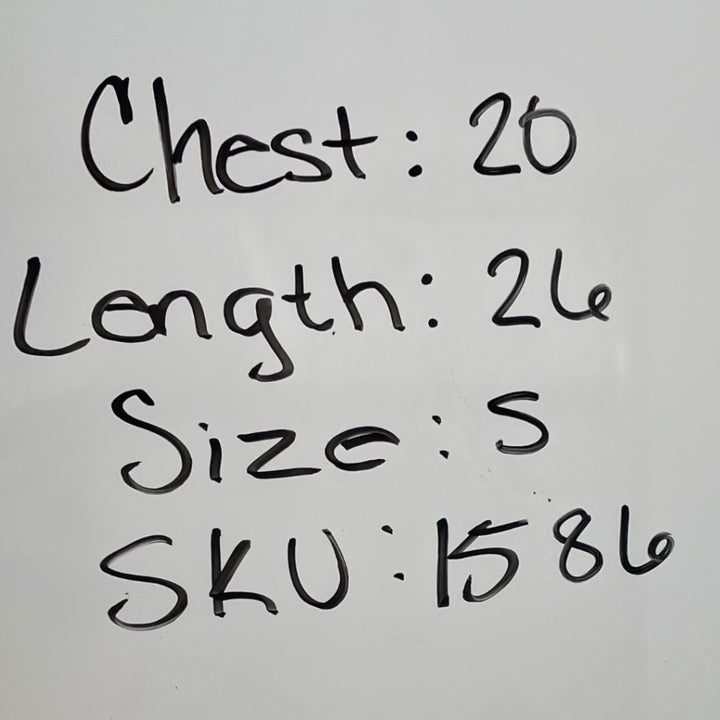 Chest: 20
Length: 26
Size: S
SKU: 1586